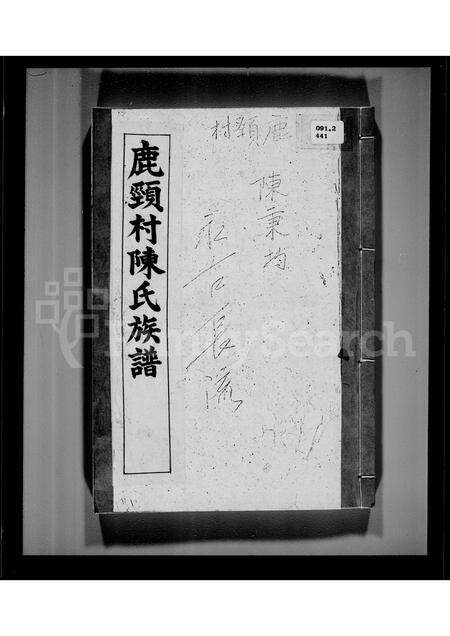 091.2
441
鹿頸村
陳秉均
永古長流
鹿頸村陳氏族譜
FamilySearch